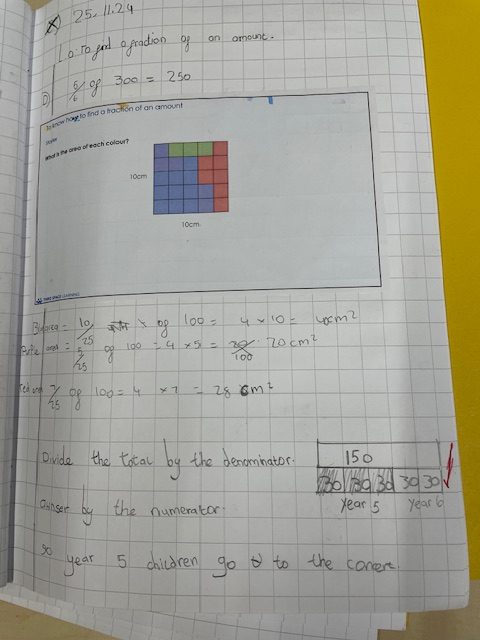 25.11.24
L.o: To find a fraction of an amount.
D) 5/6 of 300 = 250
To know how to find a fraction of an amount
Starter
What is the area of each colour?
10cm
10cm
THIRD SPACE LEARNING
Blue area = 10/25 of 100 = 4 x 10 = 40cm²
area = 5/25 of 100 = 4 x 5 = 20/100 20cm²
red area 7/25 of 100 = 4 x 7 = 28 cm²
Divide the total by the denominator.
150
30 30 30 30 30
Year 5 Year 6
by the numerator.
90 year 5 children go to to the concert.